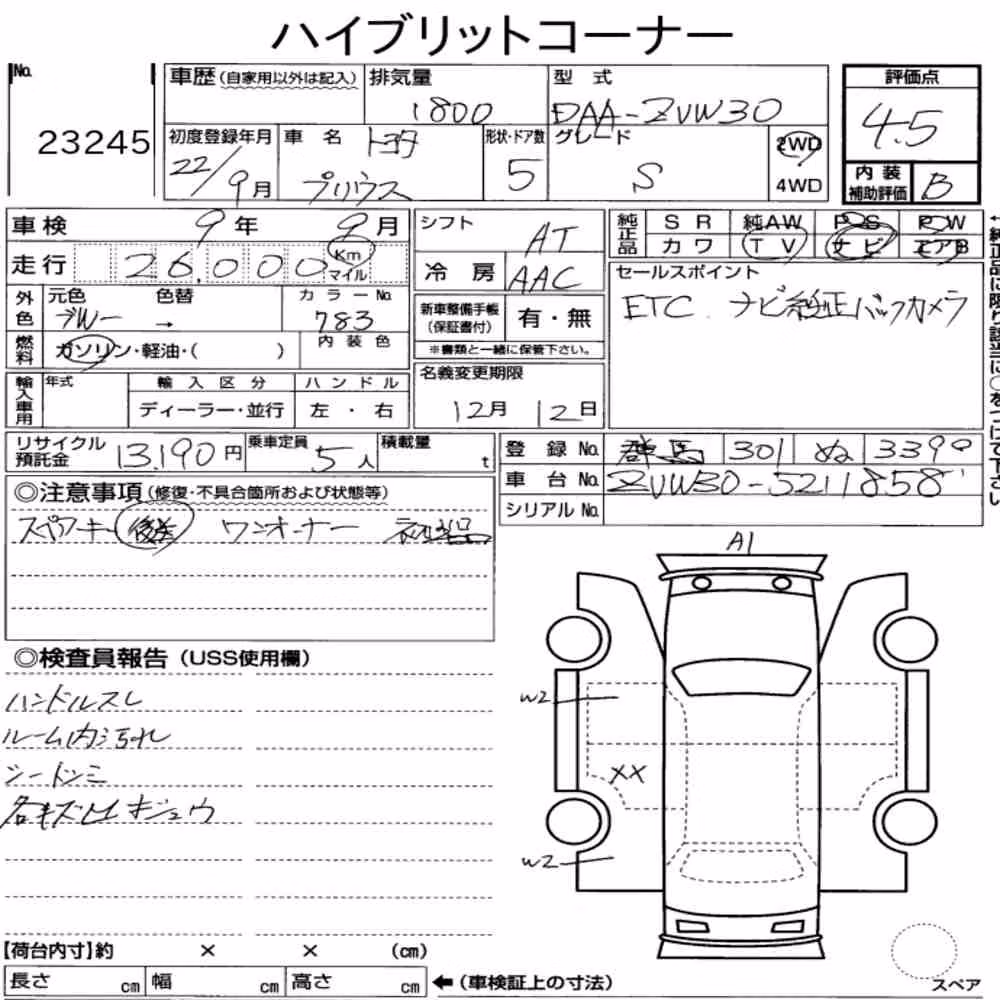 ハイブリットコーナー
No.
23245
車歴 (自家用以外は記入)
排気量
1800
型式
DAA-ZVW30
評価点
4.5
初度登録年月
22/9月
車名
トヨタ
プリウス
形状・ドア数
5
グレード
S
2WD
4WD
内装
補助評価
B
車検 9年 9月
走行 26,000 Km
マイル
シフト
AT
冷房
AAC
純正品
SR 純AW PS PW
カワ TV ナビ エアB
セールスポイント
ETC ナビ純正バックカメラ
外色
元色 色替 カラーNo.
ブルー → 783
燃料
ガソリン・軽油・( )
内装色
新車整備手帳
(保証書付)
有・無
※書類と一緒に保管下さい。
輸入車用
年式
輸入区分
ハンドル
ディーラー・並行
左・右
名義変更期限
12月 12日
リサイクル
預託金
13,190円
乗車定員
5人
積載量
t
登録No. 群馬 301 ぬ 3399
車台No. ZVW30-5211858
シリアルNo.
◎注意事項 (修復・不具合箇所および状態等)
スペアーキー 後送 ワンオーナー
◎検査員報告 (USS使用欄)
ハンドルスレ
ルーム内汚れ
シートシミ
A1
W2
XX
W2
【荷台内寸】約 × × (cm)
長さ cm 幅 cm 高さ cm
←(車検証上の寸法)
スペア
←純正品に限り該当に○をつけて下さい